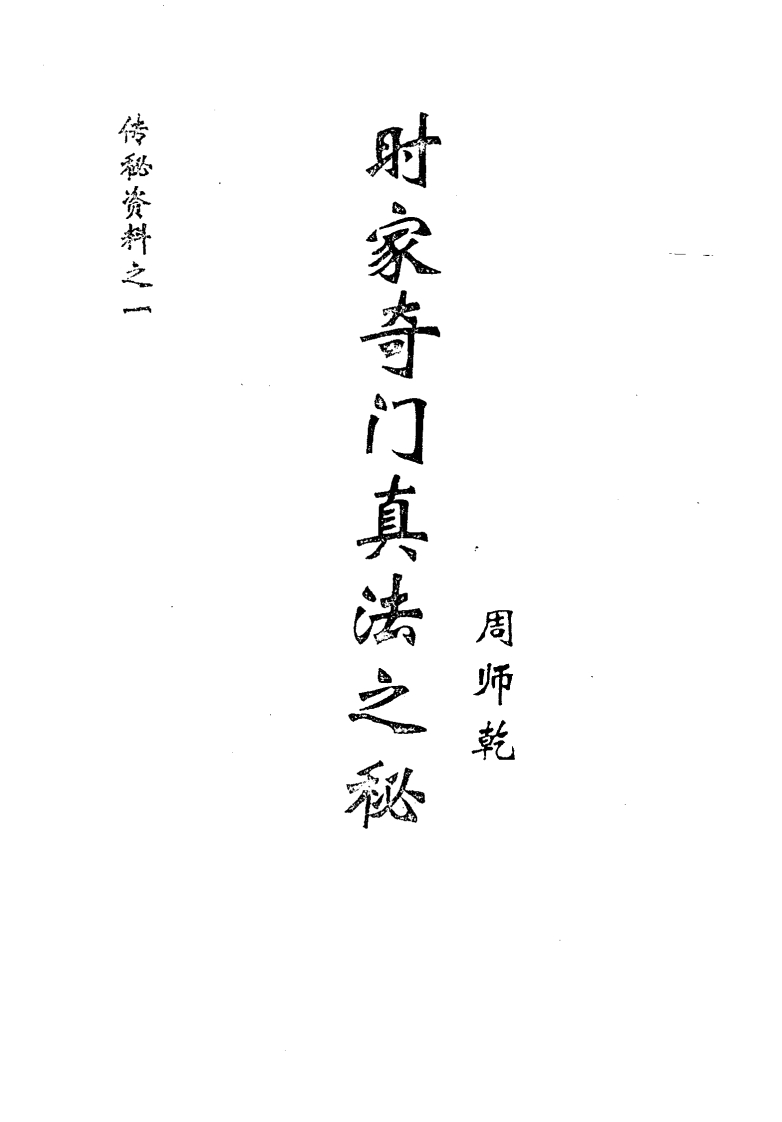 传秘资料之一
时家奇门真法之秘
周师乾